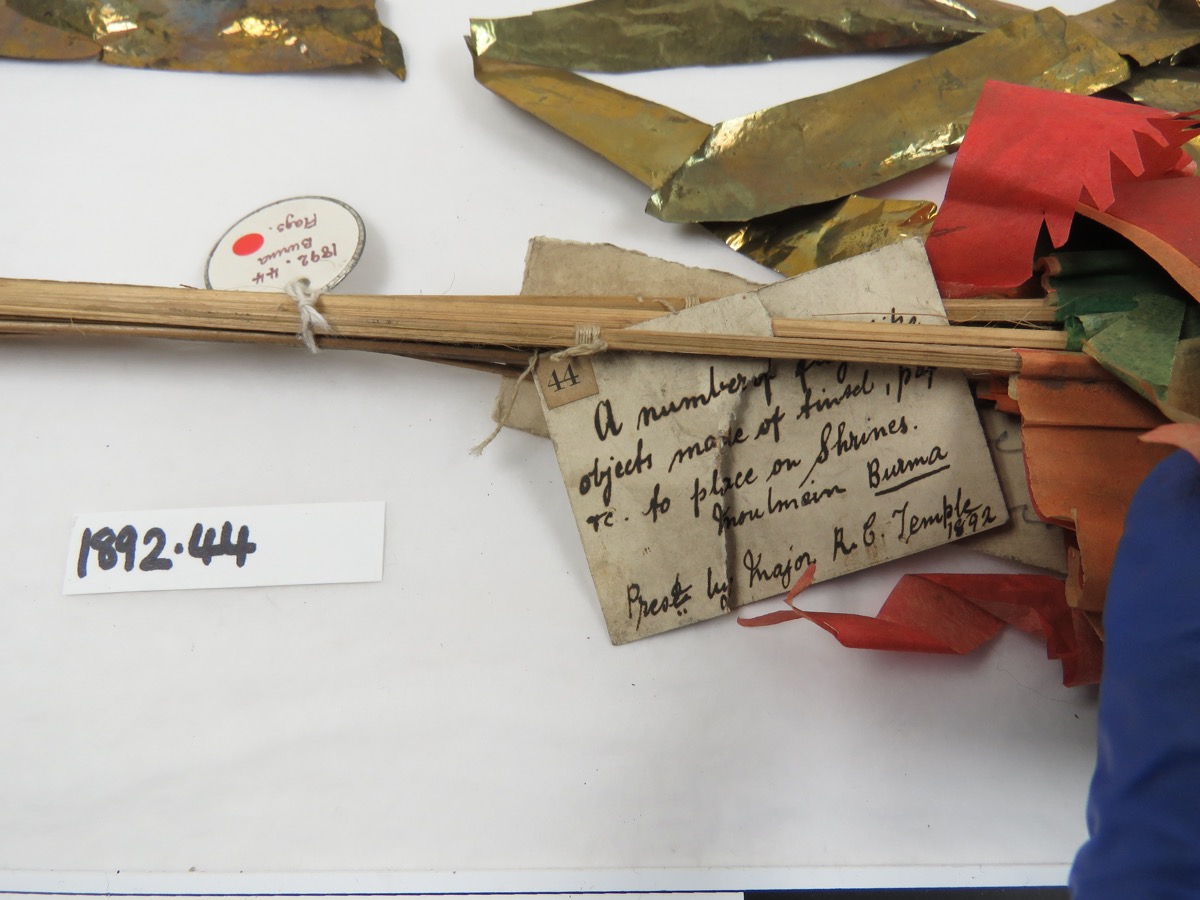 1892.44
Burma
Flags.
44
A number of
objects made of tinsel,
&c. to place on Shrines.
Moulmein Burma
Prest by Major R. C. Temple
1892
1892.44